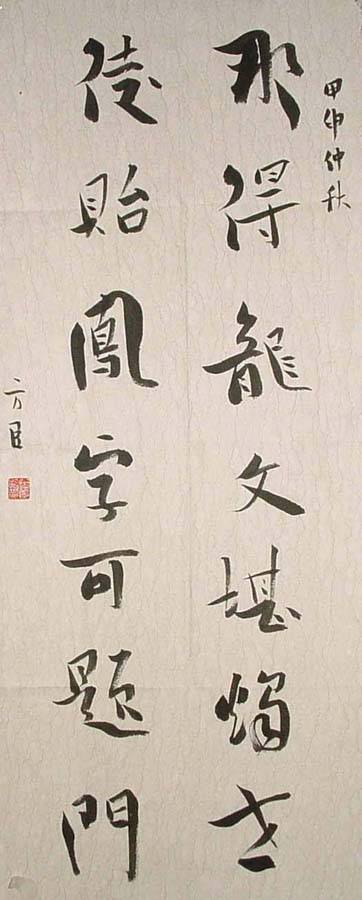 甲申仲秋
那得龍文堪燭世
徒貽鳳字可題門
方臣